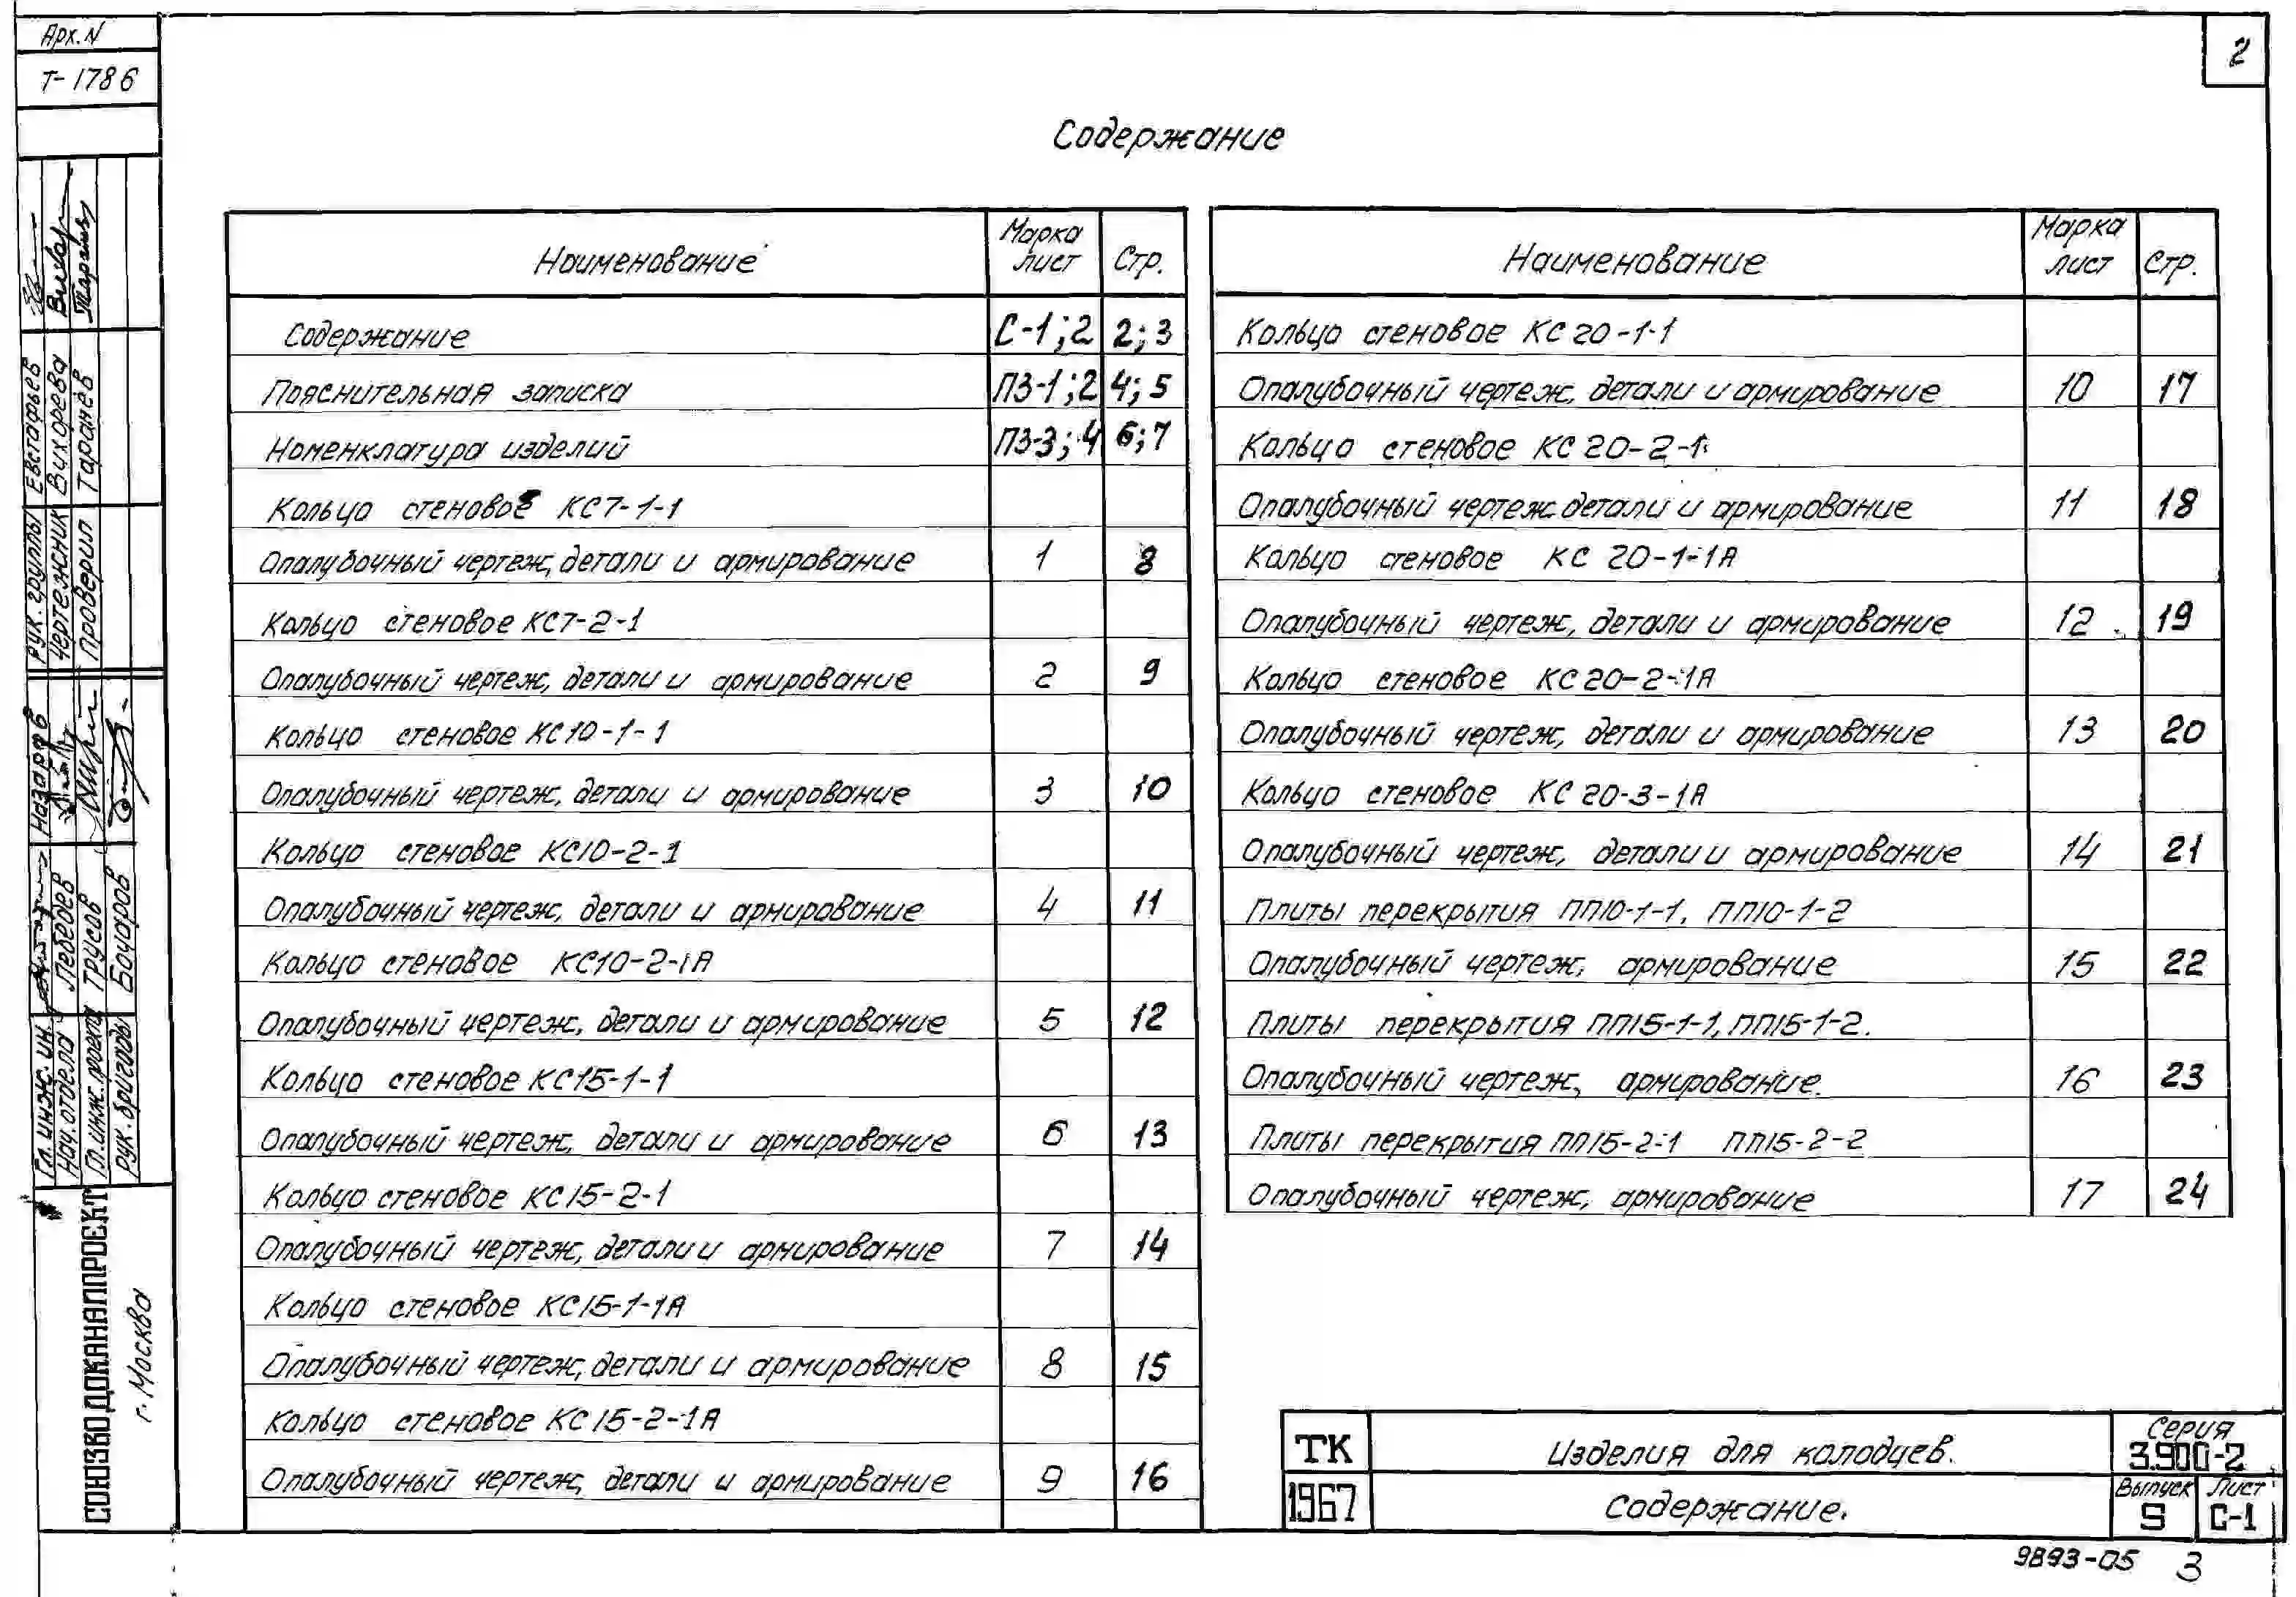 Арх. N
Т-1786
2
Содержание
Наименование Марка лист Стр.
Содержание С-1;2 2;3
Пояснительная записка ПЗ-1;2 4;5
Номенклатура изделий ПЗ-3;4 6;7
Кольцо стеновое КС7-1-1
Опалубочный чертеж, детали и армирование 1 8
Кольцо стеновое КС7-2-1
Опалубочный чертеж, детали и армирование 2 9
Кольцо стеновое КС10-1-1
Опалубочный чертеж, детали и армирование 3 10
Кольцо стеновое КС10-2-1
Опалубочный чертеж, детали и армирование 4 11
Кольцо стеновое КС10-2-1А
Опалубочный чертеж, детали и армирование 5 12
Кольцо стеновое КС15-1-1
Опалубочный чертеж, детали и армирование 6 13
Кольцо стеновое КС15-2-1
Опалубочный чертеж, детали и армирование 7 14
Кольцо стеновое КС15-1-1А
Опалубочный чертеж, детали и армирование 8 15
Кольцо стеновое КС15-2-1А
Опалубочный чертеж, детали и армирование 9 16
Наименование Марка лист Стр.
Кольцо стеновое КС20-1-1
Опалубочный чертеж, детали и армирование 10 17
Кольцо стеновое КС20-2-1
Опалубочный чертеж детали и армирование 11 18
Кольцо стеновое КС 20-1-1А
Опалубочный чертеж, детали и армирование 12 19
Кольцо стеновое КС20-2-1А
Опалубочный чертеж, детали и армирование 13 20
Кольцо стеновое КС20-3-1А
Опалубочный чертеж, детали и армирование 14 21
Плиты перекрытия ПП10-1-1, ПП10-1-2
Опалубочный чертеж, армирование 15 22
Плиты перекрытия ПП15-1-1, ПП15-1-2.
Опалубочный чертеж, армирование. 16 23
Плиты перекрытия ПП15-2-1 ПП15-2-2
Опалубочный чертеж, армирование 17 24
ТК
1967
Изделия для колодцев.
Содержание.
Серия
3.900-2
Выпуск
5
Лист
С-1
9893-05 3
Рук. группы Евстафьев
Чертежник Вихорева
Проверил Таранев
Гл. инж. ин. Назаров
Нач. отдела Лебедев
Гл. инж. проекта Трусов
Рук. бригады Бочаров
СОЮЗВОДОКАНАЛПРОЕКТ
г. Москва